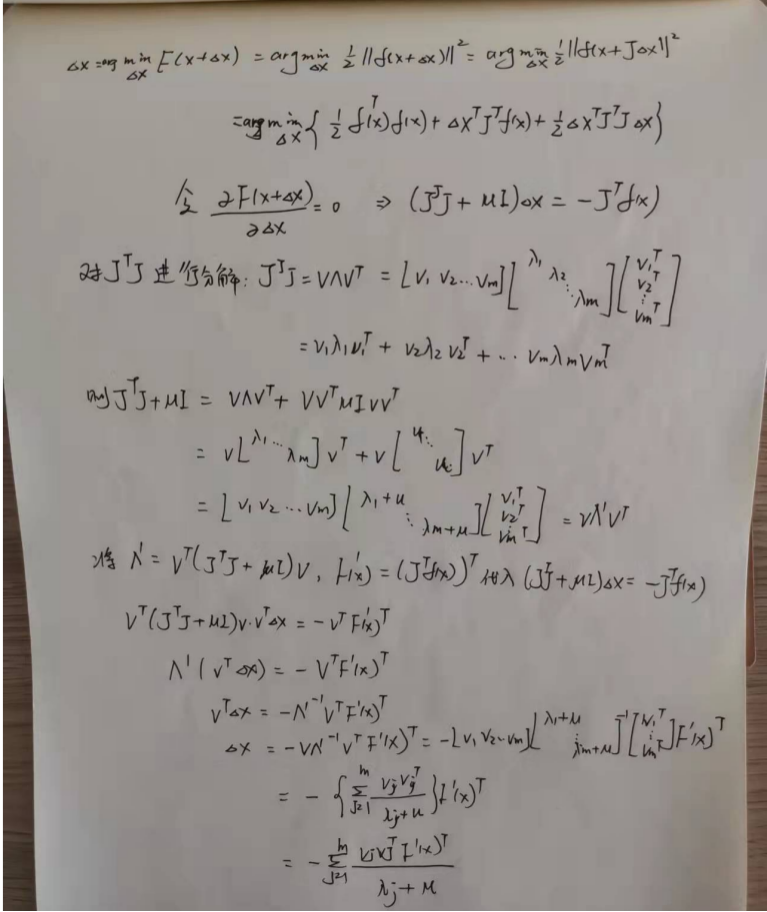 Δx = arg min_{Δx} F(x+Δx) = arg min_{Δx} 1/2 ||f(x+Δx)||² = arg min_{Δx} 1/2 ||f(x+JΔx)||²
= arg min_{Δx} { 1/2 f^T(x)f(x) + Δx^T J^T f(x) + 1/2 Δx^T J^T J Δx }
令 ∂F(x+Δx)/∂Δx = 0 ⇒ (J^T J + μI)Δx = -J^T f(x)
对 J^T J 进行分解: J^T J = VΛV^T = [v₁ v₂ ... v_m] [λ₁ λ₂ ⋱ λ_m] [v₁^T v₂^T ⋮ v_m^T]
= v₁λ₁v₁^T + v₂λ₂v₂^T + ... v_mλ_mv_m^T
则 J^T J + μI = VΛV^T + VV^T μI VV^T
= V[λ₁ ⋱ λ_m]V^T + V[u ⋱ u]V^T
= [v₁ v₂ ... v_m] [λ₁+u ⋱ λ_m+u] [v₁^T v₂^T ⋮ v_m^T] = VΛ'V^T
将 Λ' = V^T(J^T J + μI)V, F'(x) = (J^T f(x))^T 代入 (J^T J + μI)Δx = -J^T f(x)
V^T(J^T J + μI)V·V^TΔx = -V^T F'(x)^T
Λ'(V^TΔx) = -V^T F'(x)^T
V^TΔx = -Λ'^{-1}V^T F'(x)^T
Δx = -VΛ'^{-1}V^T F'(x)^T = -[v₁ v₂ ... v_m] [λ₁+u ⋱ λ_m+u]^{-1} [v₁^T ⋮ v_m^T] F'(x)^T
= -{ Σ_{j=1}^{m} v_j v_j^T / (λ_j+u) } F'(x)^T
= -Σ_{j=1}^{m} v_j v_j^T F'(x)^T / (λ_j+μ)